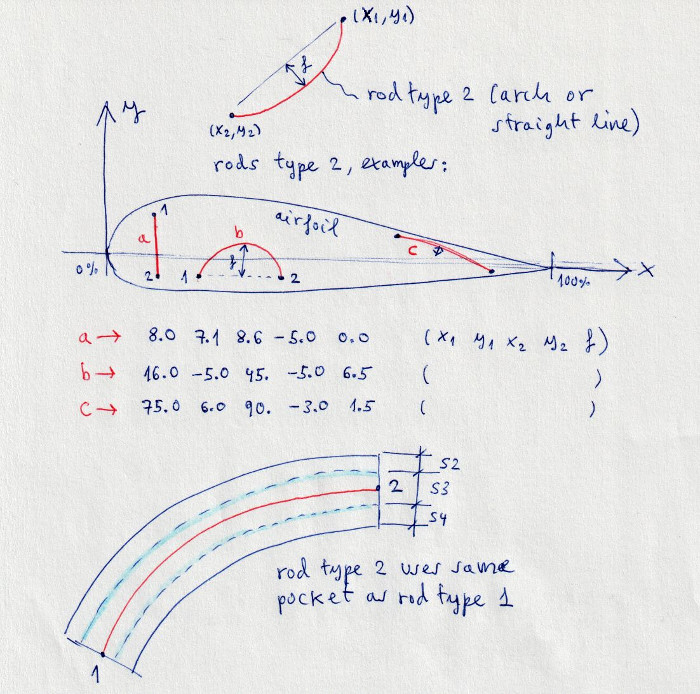 (x1, y1)
f
rod type 2 (arch or
straight line)
(x2, y2)
y
rods type 2, examples:
1
airfoil
a
b
f
c
2
1
2
0%
100%
x
a → 8.0 7.1 8.6 -5.0 0.0 (x1 y1 x2 y2 f)
b → 16.0 -5.0 45. -5.0 6.5 ( )
c → 75.0 6.0 90. -3.0 1.5 ( )
S2
2
S3
S4
rod type 2 uses same
pocket as rod type 1
1